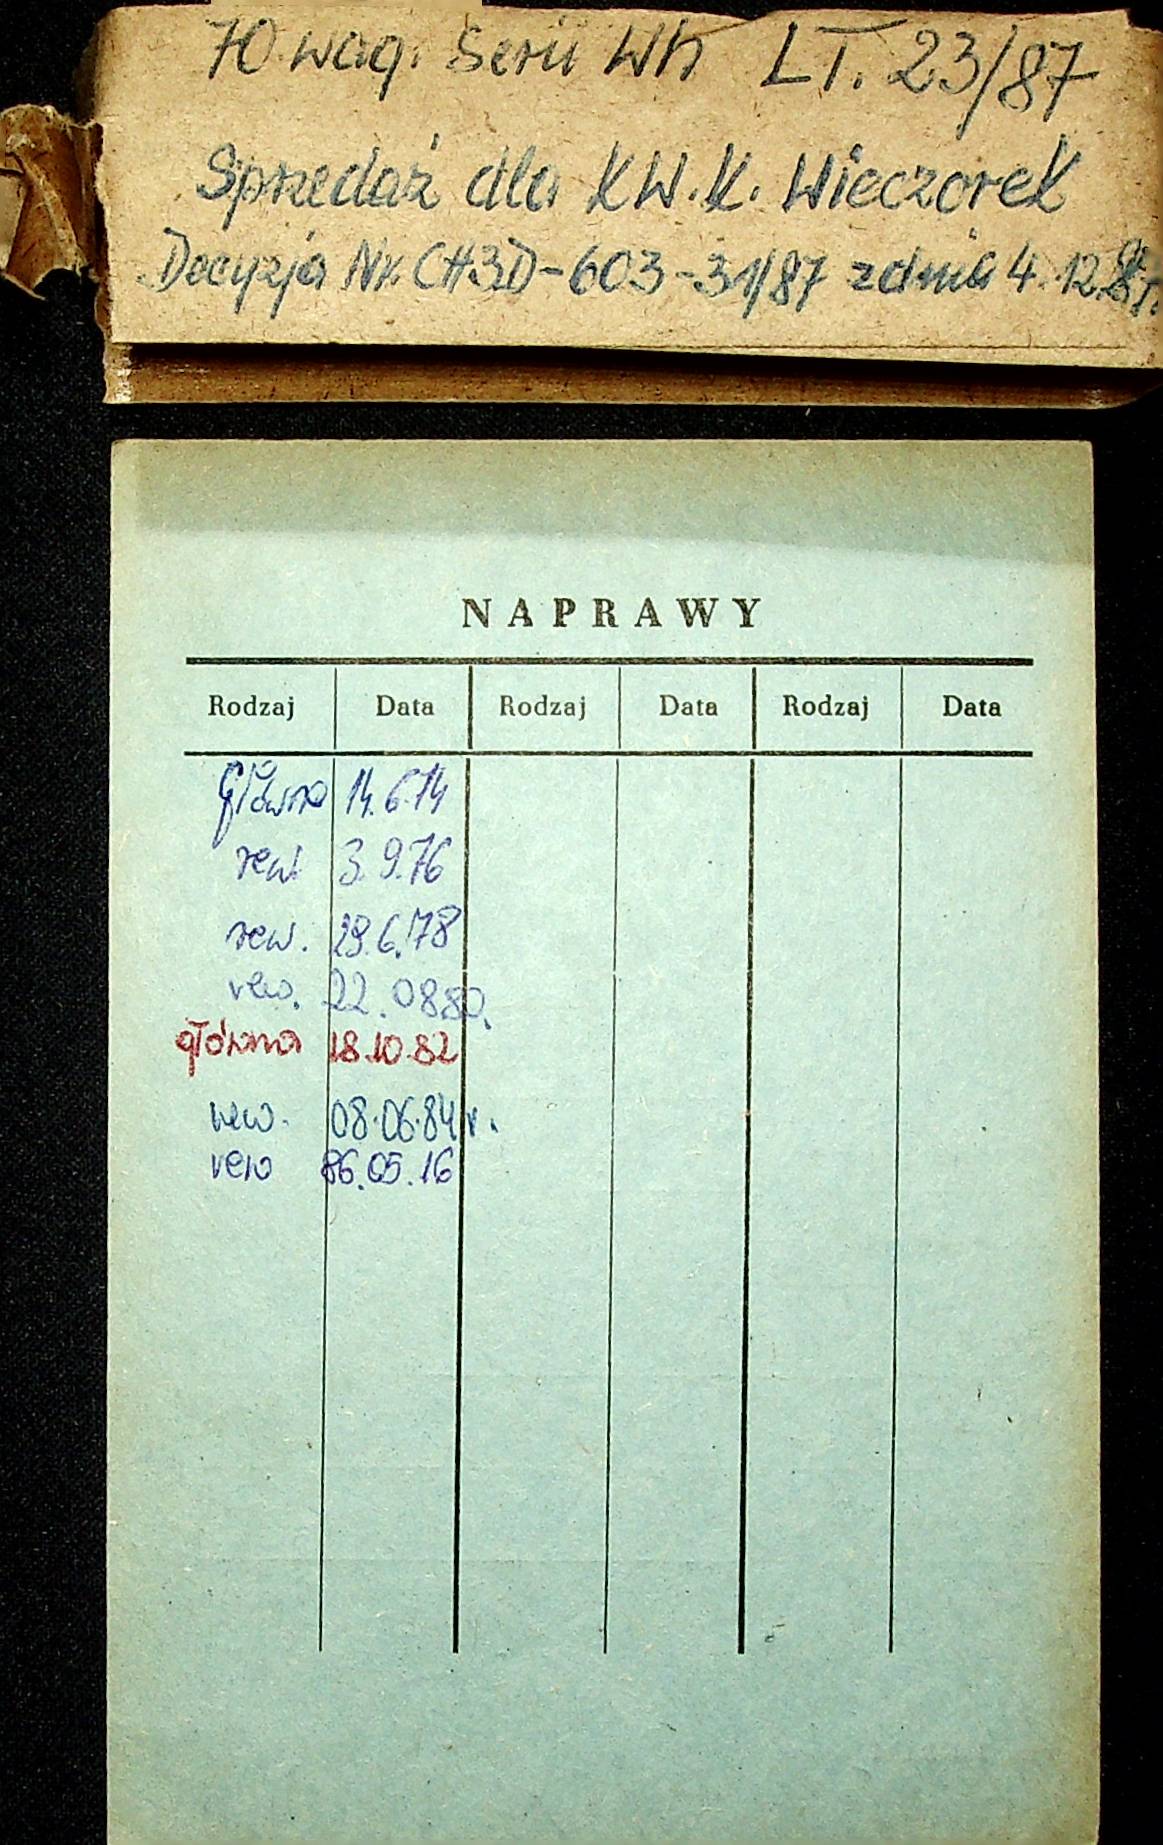 70 wag. Serii Wh LT. 23/87
Sprzedaż dla KW.K. Wieczorek
Decyzja Nr. CH3D-603-31/87 z dnia 4.12.
NAPRAWY
Rodzaj Data Rodzaj Data Rodzaj Data
Główna 14.6.74
rew. 3.9.76
rew. 29.6.78
rew. 22.08.80.
główna 18.10.82
rew. 08.06.84 r.
rew 86.05.16